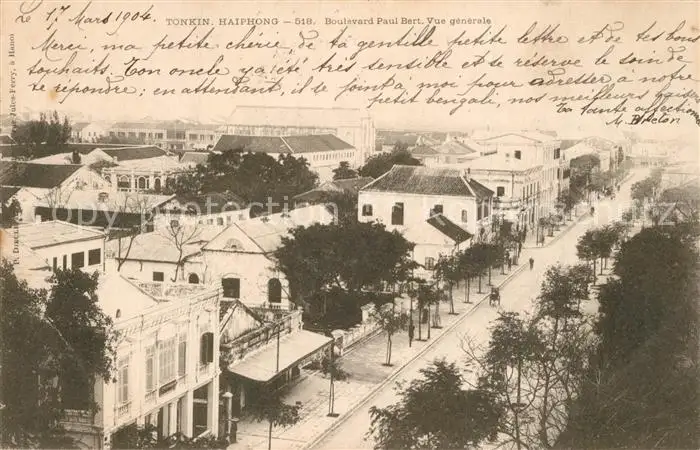 Le 17 Mars 1904
TONKIN. HAIPHONG — 518. Boulevard Paul Bert. Vue générale
Merci, ma petite chérie, de ta gentille petite lettre et de tes bons
souhaits. Ton oncle y a été très sensible et se réserve le soin de
te répondre; en attendant, il se joint à moi pour adresser à notre
petit bengale, nos meilleurs baisers
Ta tante affectionnée
M. Breton
Jules-Ferry, à Hanoï
P. Dieulefils
delcampe.net